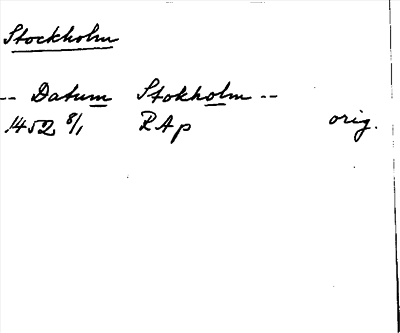 Stockholm
-- Datum Stokholm --
1452 8/1 RAp orig.